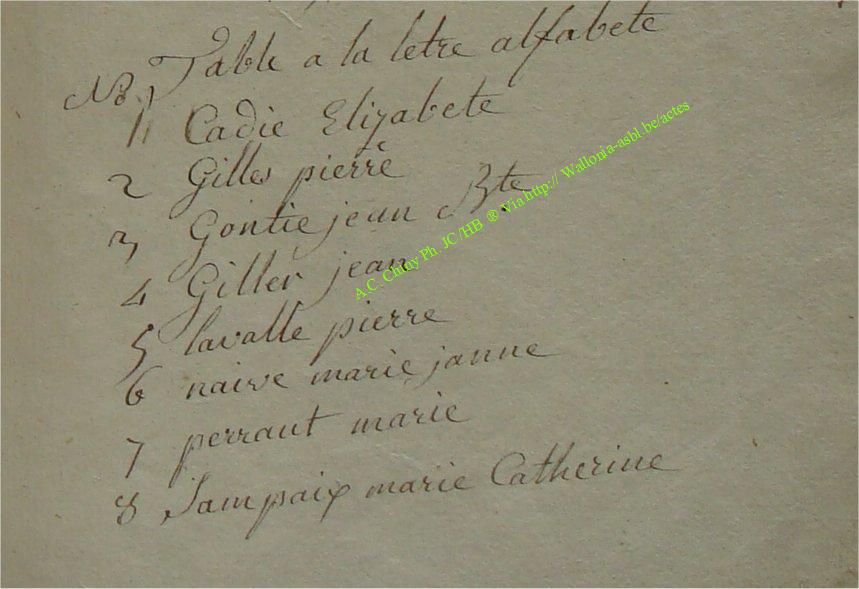 Table a la letre alfabete
No
1 Cadie Elizabete
2 Gilles pierre
3 Gontie jean Bte
4 Giller jean
5 lavalle pierre
6 naive marie janne
7 perraut marie
8 Sampaix marie Catherine
A.C. Chiny Ph. JC/HB ® Via http:// Wallonia-asbl.be/actes